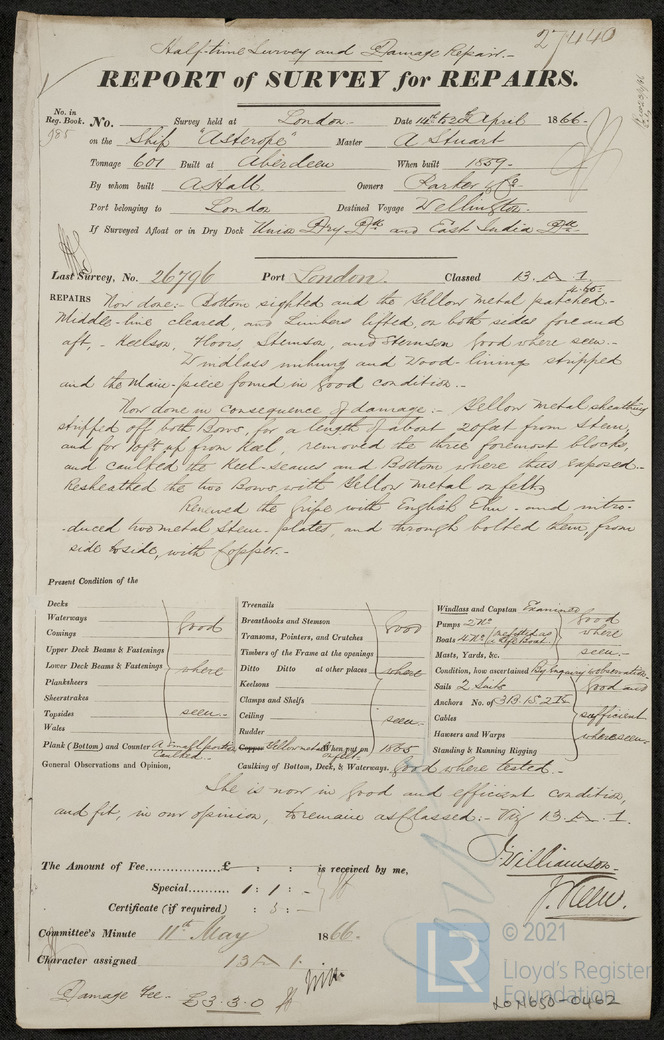 27440
Half-time Survey and Damage Repair.-
REPORT of SURVEY for REPAIRS.
No. in Reg. Book. No. Survey held at London.- Date 14th to 20th April 1866.-
985 on the Ship "Asterope" Master A Stuart
Tonnage 601 Built at Aberdeen When built 1859-
By whom built A Hall. Owners Parker & Co-
Port belonging to London Destined Voyage Wellington.
If Surveyed Afloat or in Dry Dock Union Dry Dk and East India Dk-
Last Survey, No. 26796 Port London. Classed 13. A 1.
4.66-
REPAIRS Now done:- Bottom sighted and the Yellow Metal patched-
Middle-line cleared, and Limbers lifted, on both sides fore and
aft,- Keelson, Floors, Stemson, and Sternson good where seen.-
Windlass unhung and Wood-lining stripped
and the Main-piece found in good condition.-
Now done in consequence of damage:- Yellow metal sheathing
stripped off both Bows, for a length of about 20 feet from Stem,
and for 10 ft up from Keel, removed the three foremost blocks,
and caulked the Keel-seams and Bottom where thus exposed.-
Resheathed the two Bows with Yellow Metal on felt.
Renewed the Gripe with English Elm - and intro-
-duced two metal Stem-plates, and through bolted them, from
side to side, with Copper.-
Present Condition of the
Decks
Waterways
Comings
Upper Deck Beams & Fastenings
Lower Deck Beams & Fastenings
Planksheers
Sheerstrakes
Topsides
Wales
good
where
seen.-
Plank (Bottom) and Counter a small portion caulked.
Treenails
Breasthooks and Stemson
Transoms, Pointers, and Crutches
Timbers of the Frame at the openings
Ditto Ditto at other places
Keelsons
Clamps and Shelfs
Ceiling
Rudder
good
where
seen.-
Copper Yellow metal When put on 1865
Windlass and Capstan Examined
Pumps 2 No.
Boats 4 No.
Masts, Yards, &c.
good
where
seen.-
Condition, how ascertained By Enquiry & observation
Sails 2 Suits
Anchors No. of 3 B. 1 S. 2 K
Cables
Hawsers and Warps
Standing & Running Rigging
good and
sufficient
where seen.-
General Observations and Opinion, Caulking of Bottom, Deck, & Waterways. Good where tested.-
She is now in good and efficient condition,
and fit, in our opinion, to remain as classed.- Viz 13. A. 1.
J. Williamson.-
J. Keen.
The Amount of Fee.................. £ : : is received by me,
Special........... 1 : 1 : -
Certificate (if required) : 5 : -
Committee's Minute 11th May 1866.
Character assigned 13 A 1.
Damage Fee.- £3.3.0
LR
© 2021
Lloyd's Register
Foundation
LON650-0462